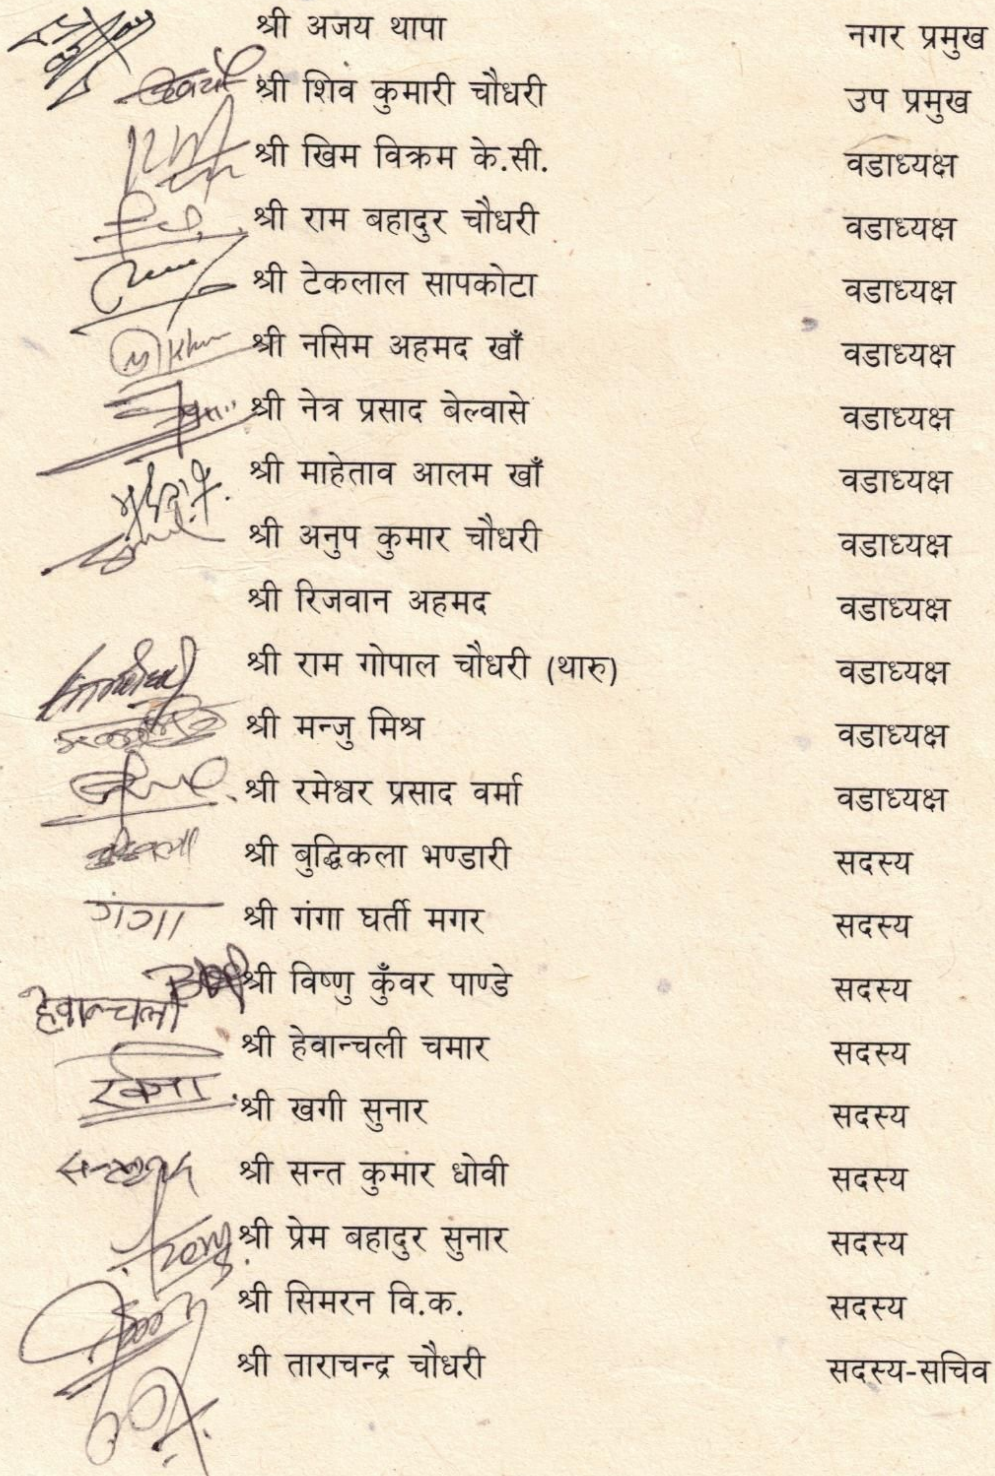 श्री अजय थापा नगर प्रमुख
श्री शिव कुमारी चौधरी उप प्रमुख
श्री खिम विक्रम के.सी. वडाध्यक्ष
श्री राम बहादुर चौधरी वडाध्यक्ष
श्री टेकलाल सापकोटा वडाध्यक्ष
श्री नसिम अहमद खाँ वडाध्यक्ष
श्री नेत्र प्रसाद बेल्वासे वडाध्यक्ष
श्री माहेताव आलम खाँ वडाध्यक्ष
श्री अनुप कुमार चौधरी वडाध्यक्ष
श्री रिजवान अहमद वडाध्यक्ष
श्री राम गोपाल चौधरी (थारु) वडाध्यक्ष
श्री मन्जु मिश्र वडाध्यक्ष
श्री रमेश्वर प्रसाद वर्मा वडाध्यक्ष
श्री बुद्धिकला भण्डारी सदस्य
गंगा श्री गंगा घर्ती मगर सदस्य
श्री विष्णु कुँवर पाण्डे सदस्य
हेवान्चली
श्री हेवान्चली चमार सदस्य
श्री खगी सुनार सदस्य
श्री सन्त कुमार धोवी सदस्य
श्री प्रेम बहादुर सुनार सदस्य
श्री सिमरन वि.क. सदस्य
श्री ताराचन्द्र चौधरी सदस्य-सचिव